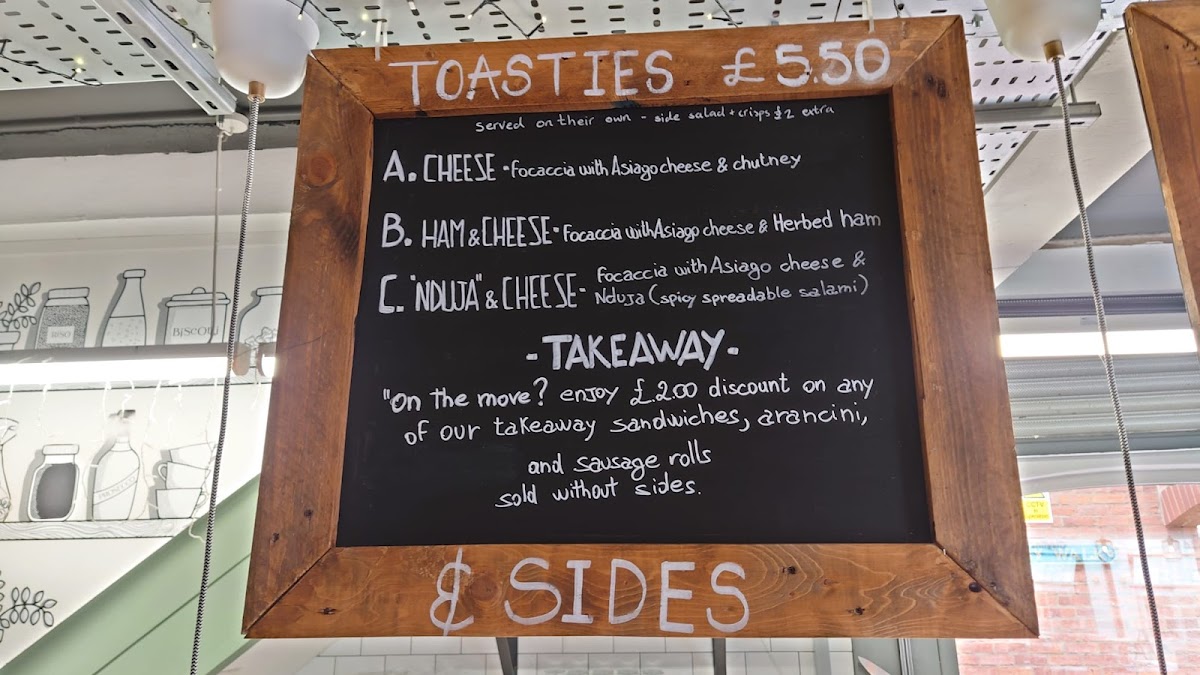 TOASTIES £5.50
served on their own - side salad + crisps £2 extra
A. CHEESE - Focaccia with Asiago cheese & chutney
B. HAM & CHEESE - Focaccia with Asiago cheese & Herbed ham
C. "NDUJA" & CHEESE - Focaccia with Asiago cheese &
Nduja (spicy spreadable salami)
- TAKEAWAY -
"On the move? enjoy £2.00 discount on any
of our takeaway sandwiches, arancini,
and sausage rolls
sold without sides.
& SIDES
RISO
BISCOTTI
PROSECCO
CCTV